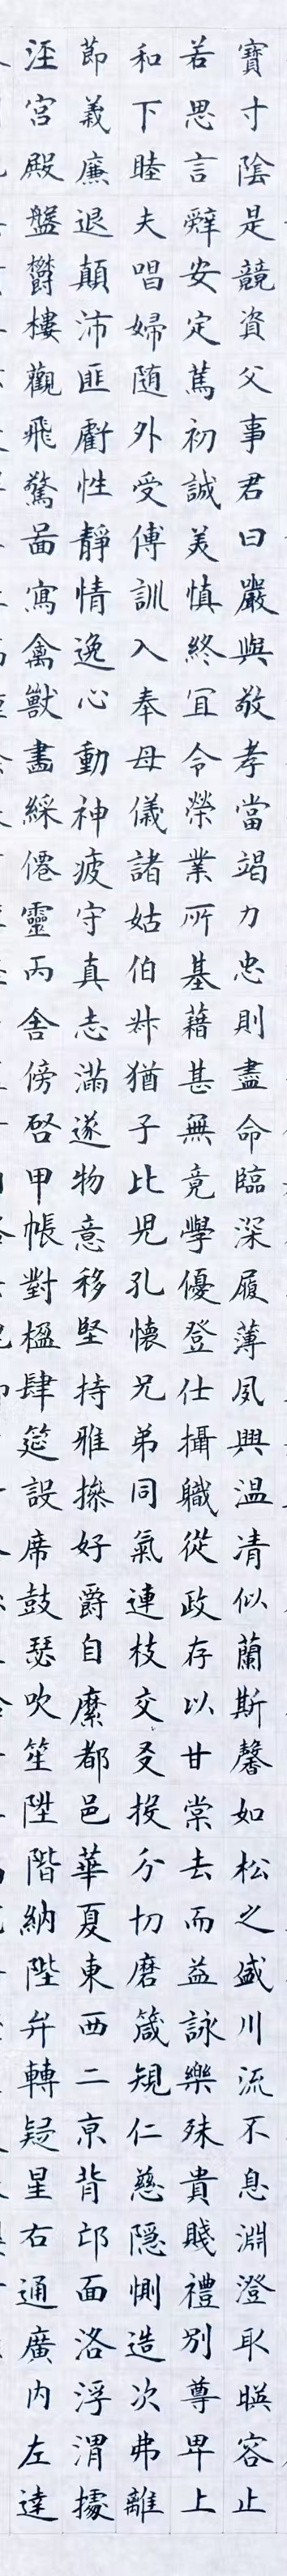 寶寸陰是競資父事君曰嚴與敬孝當竭力忠則盡命臨深履薄夙興温凊似蘭斯馨如松之盛川流不息淵澄取暎容止
若思言辭安定篤初誠美慎終冝令榮業所基藉甚無竟學優登仕攝職從政存以甘棠去而益詠樂殊貴賤禮別尊卑上
和下睦夫唱婦随外受傅訓入奉母儀諸姑伯叔猶子比兒孔懷兄弟同氣連枝交友投分切磨箴規仁慈隱惻造次弗離
節義廉退顛沛匪虧性靜情逸心動神疲守真志滿遂物意移堅持雅操好爵自縻都邑華夏東西二京背邙面洛浮渭據
涇宮殿盤欝樓觀飛驚啚寫禽獸畵綵僊靈丙舍傍啓甲帳對楹肆筵設席鼓瑟吹笙陞階納陛弁轉疑星右通廣内左達